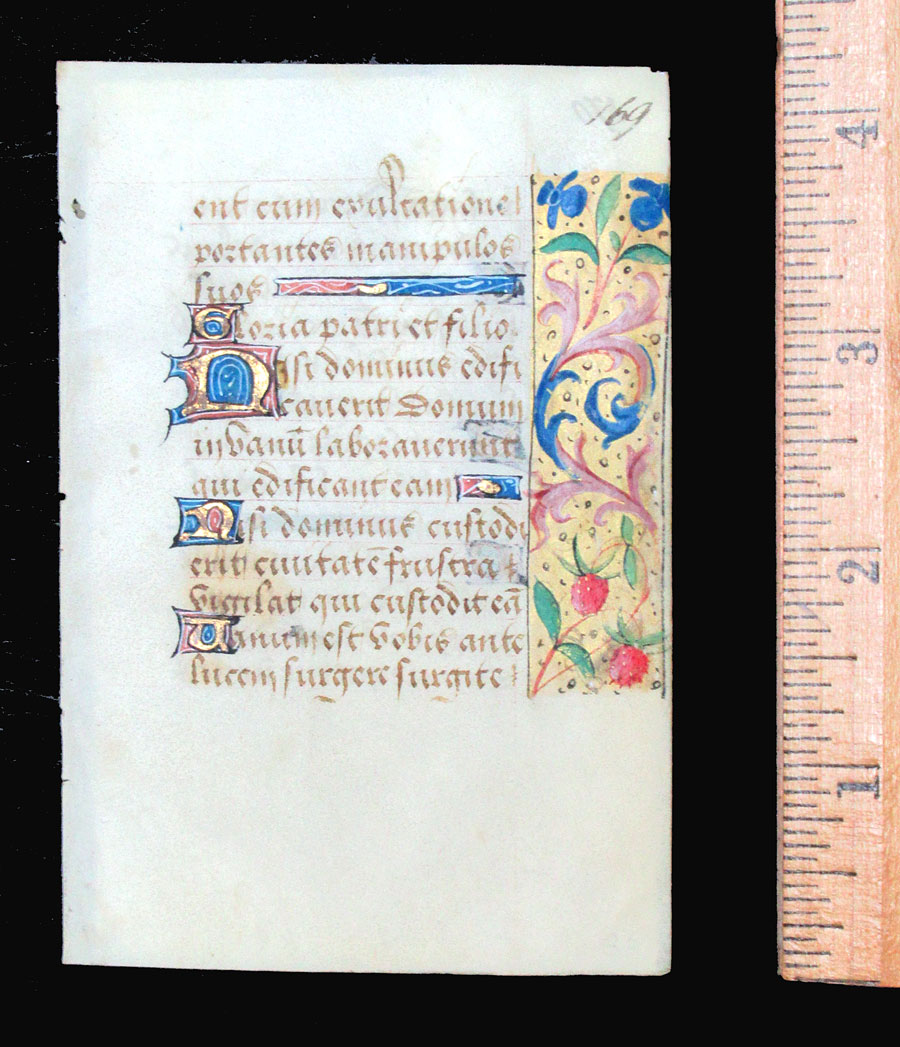 169
ent cum exultatione
portantes manipulos
suos
Gloria patri et filio.
Nisi dominus edifi
caverit Domum
in vanū laboraverunt
qui edificant eam
Nisi dominus custodi
erit civitatē frustra
vigilat qui custodit eā
Vanum est vobis ante
lucem surgere surgite
4
3
2
1